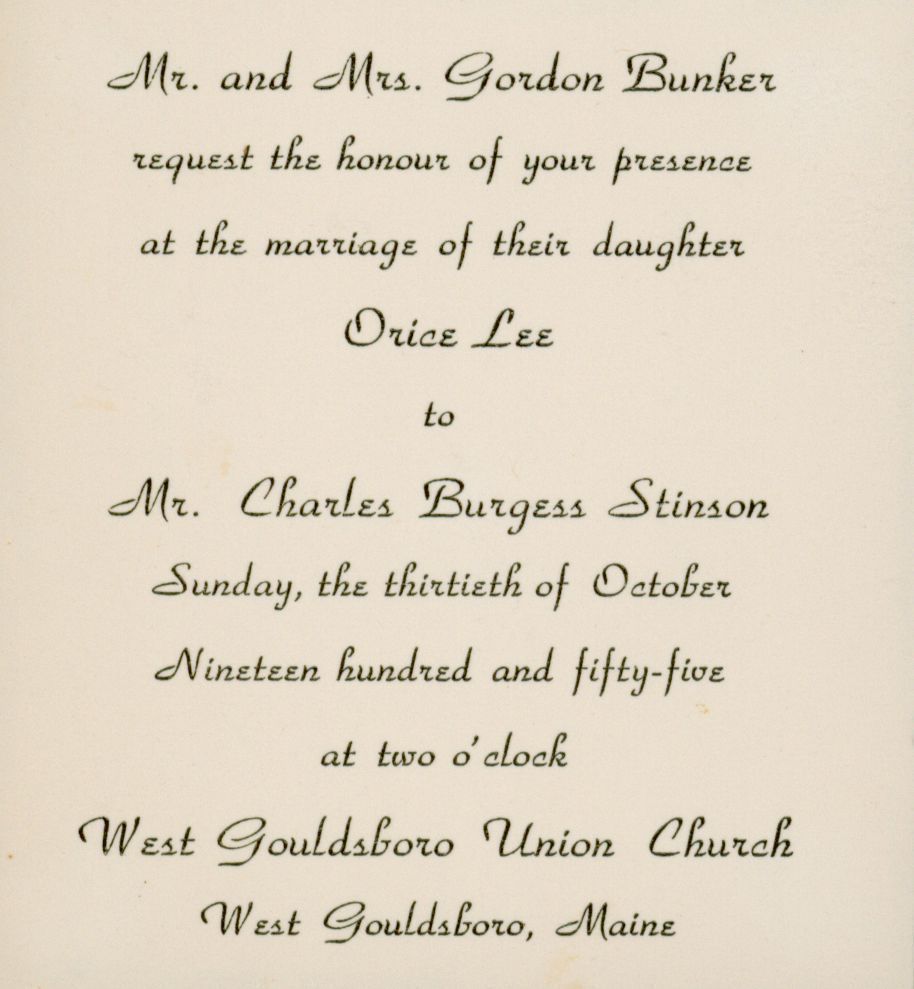 Mr. and Mrs. Gordon Bunker
request the honour of your presence
at the marriage of their daughter
Orice Lee
to
Mr. Charles Burgess Stinson
Sunday, the thirtieth of October
Nineteen hundred and fifty-five
at two o'clock
West Gouldsboro Union Church
West Gouldsboro, Maine